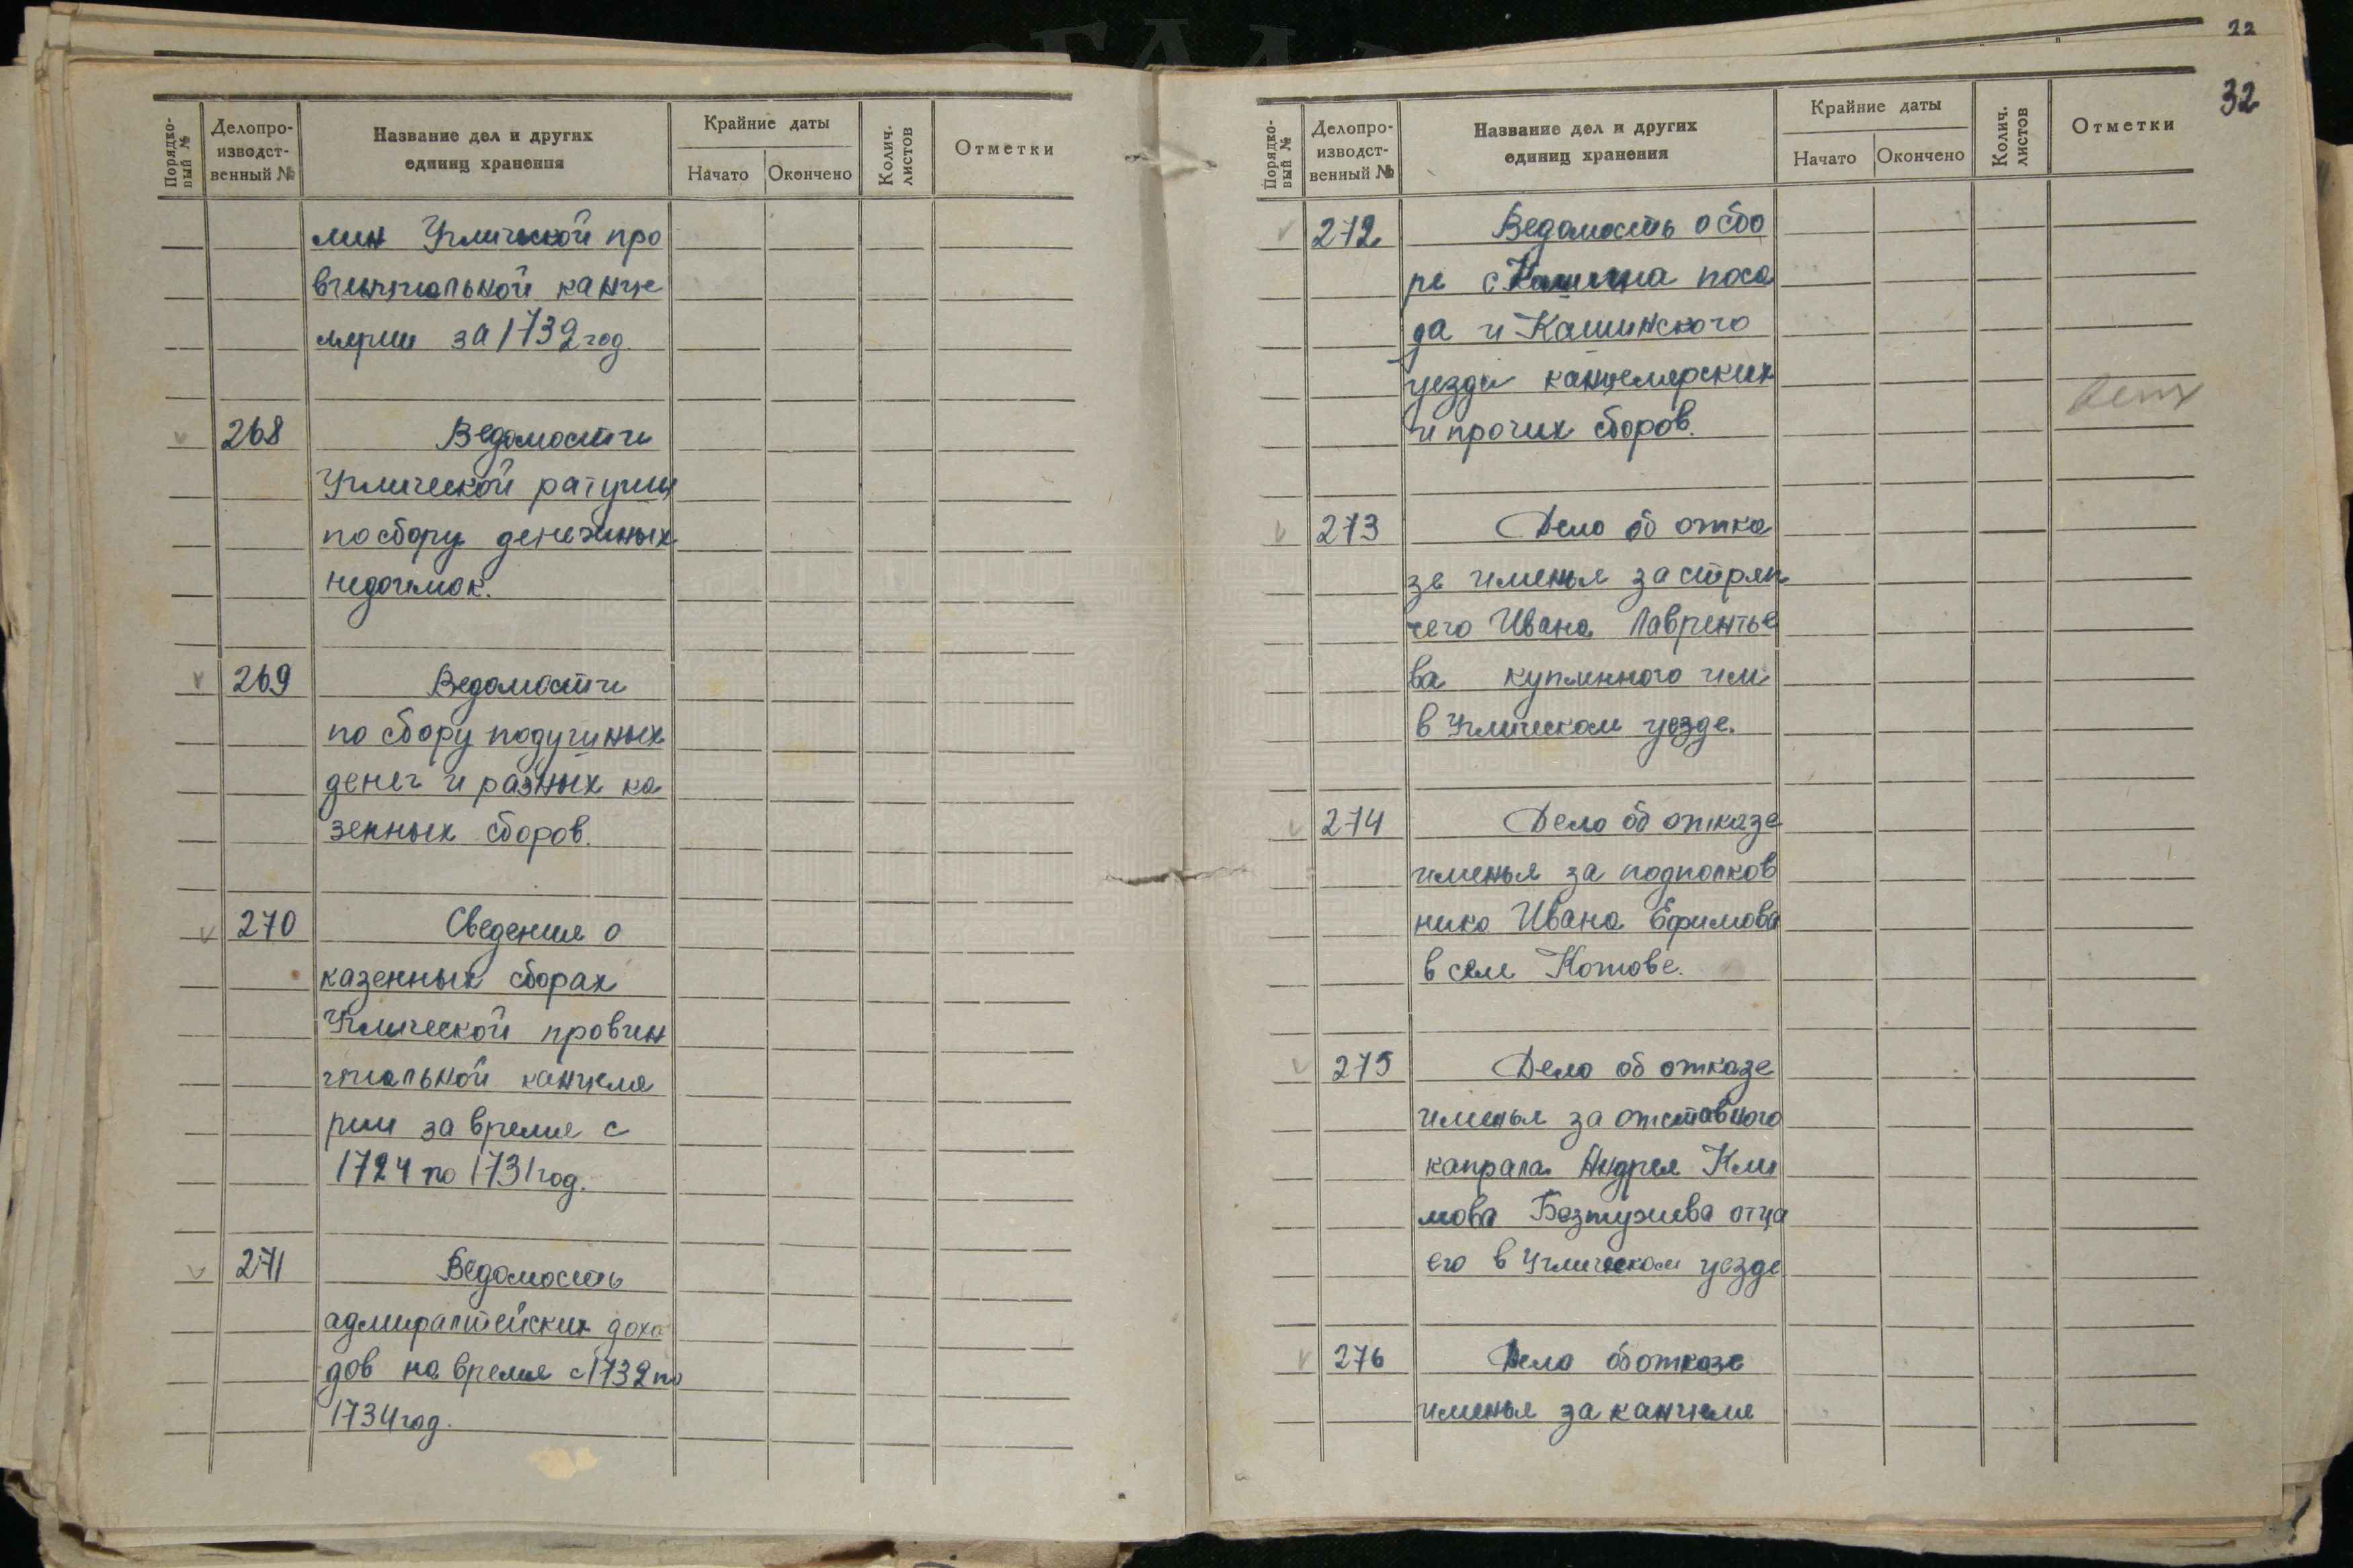 Порядко-
вый №
Делопро-
изводст-
венный №
Название дел и других
единиц хранения
Крайние даты
Начато
Окончено
Колич.
листов
Отметки
лин Угличской про
винциальной канце
лярии за 1732 год.
268 Ведомости
Углической ратуши
по сбору денежных
недоимок.
269 Ведомости
по сбору подушных
денег и разных ка
зенных сборов.
270 Сведения о
казенных сборах
Углической провин
циальной канцеля
рии за время с
1724 по 1731 год.
271 Ведомость
адмиралтейских дохо
дов на время с 1732 по
1734 год.
22
32
Порядко-
вый №
Делопро-
изводст-
венный №
Название дел и других
единиц хранения
Крайние даты
Начато
Окончено
Колич.
листов
Отметки
272 Ведомость о сбо
ре с Кашина поса
да и Кашинского
уезда канцелярских
и прочих сборов.
273 Дело об отка
зе именья за стряп
чего Ивана Лаврентье
ва купленного им
в Углическом уезде.
274 Дело об отказе
именья за подполков
ника Ивана Ефимова
в селе Котове.
275 Дело об отказе
именья за отставного
капрала Андрея Кли
мова Безтужева отца
его в Углическом уезде
276 Дело об отказе
именья за канцеля